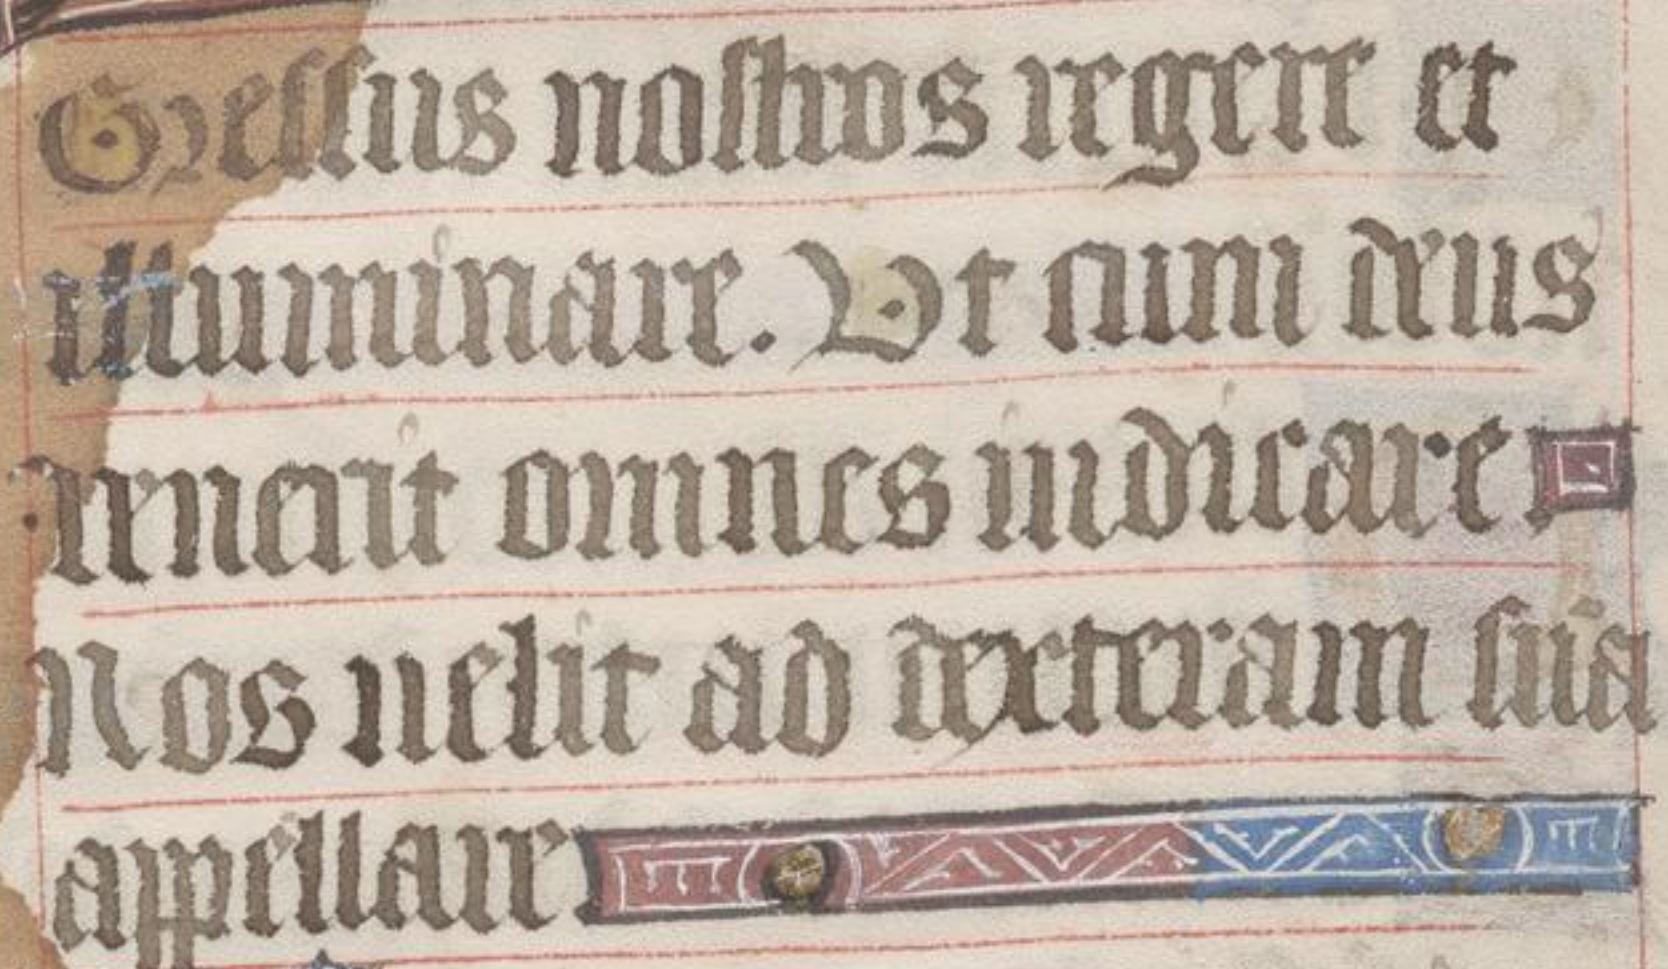 Gressus nostros regere et
illuminare. Ut cum deus
uenerit omnes iudicare
Nos uelit ad dexteram suā
appellare